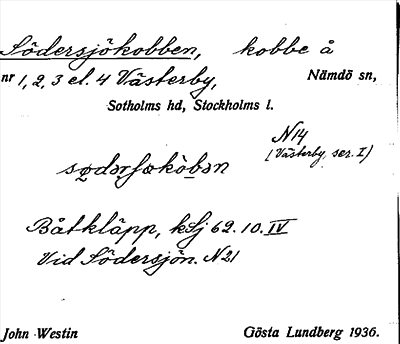 Södersjökobben, kobbe å
nr 1, 2, 3 el. 4 Västerby, Nämdö sn,
Sotholms hd, Stockholms l.
N14
(Västerby, ser. I)
Båtkläpp, kSj 62. 10. IV
Vid Södersjön. N21
John Westin Gösta Lundberg 1936.